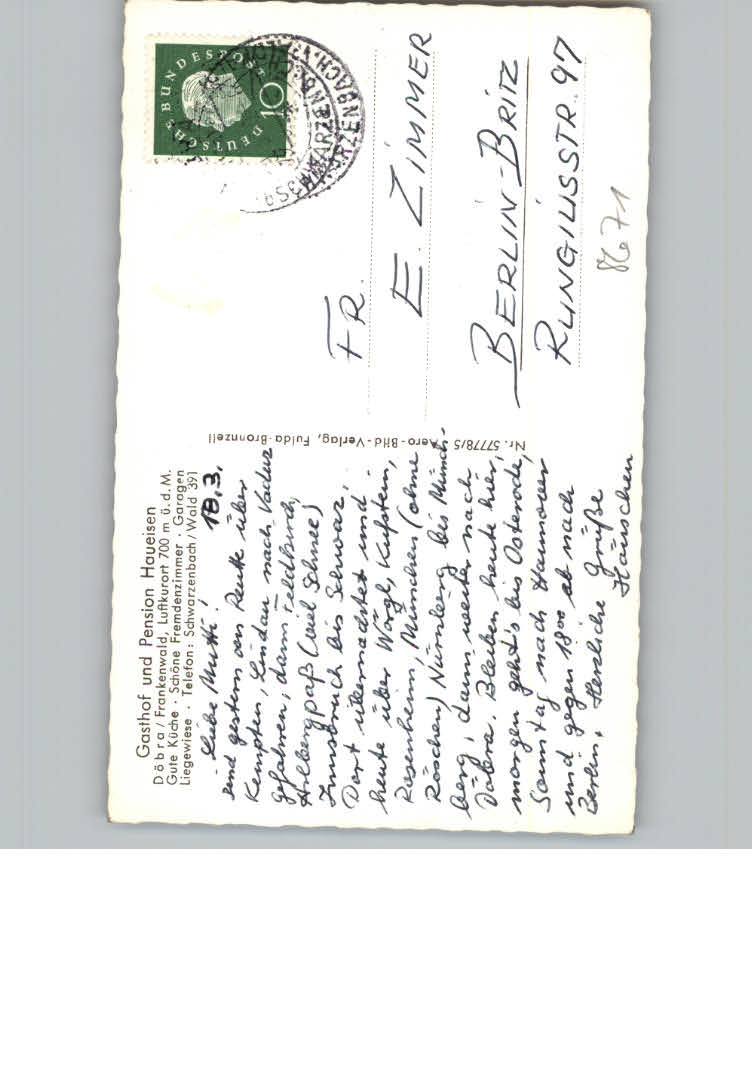 Gasthof und Pension Haueisen
Döbra / Frankenwald, Luftkurort 700 m ü. d. M.
Gute Küche · Schöne Fremdenzimmer · Garagen
Liegewiese · Telefon: Schwarzenbach / Wald 391
18.3.
Liebe Mutti!
sind gestern von Reute über
Kempten, Lindau nach Vaduz
gefahren, dann Feldkirch,
Arlbergpaß (viel Schnee)
Innsbruck bis Schwaz.
Dort übernachtet und
heute über Wörgl, Kufstein,
Rosenheim, München (ohne
Röschen) Nürnberg bis Münch-
berg, dann weiter nach
Döbra. Bleiben heute hier,
morgen geht's bis Osterode,
Sonntag nach Hannover
und gegen 18°° ab nach
Berlin. Herzliche Grüße
Häuschen
Nr. 57778/5 Aero-Bild-Verlag, Fulda-Bronnzell
DEUTSCHE BUNDESPOST
10
SCHWARZENBACH
FR.
E. ZIMMER
BERLIN-BRITZ
RUNGIUSSTR. 97
8671